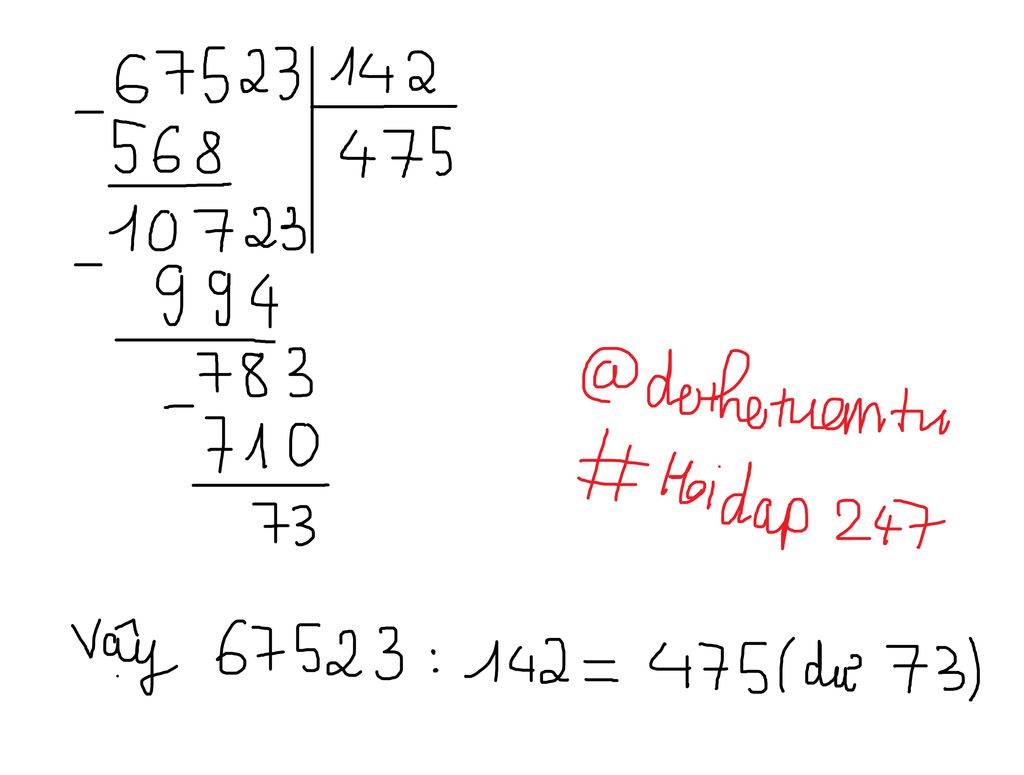 67523 142
- 568 475
10723
- 994
783
- 710
73
@dethetuantu
#Hoidap247
Vậy 67523 : 142 = 475 (dư 73)